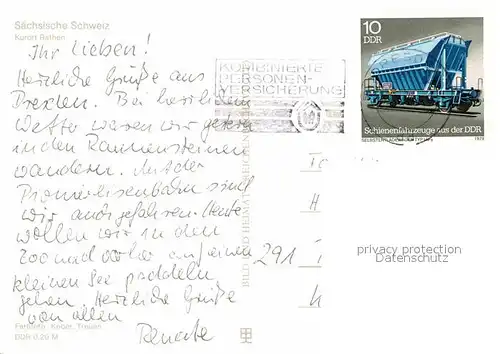 Sächsische Schweiz
Kurort Rathen
Ihr Lieben!
Herzliche Grüße aus
Dresden. Bei herrlichem
Wetter waren wir gestern
in den Rauensteinen
wandern. Mit der
Pioniereisenbahn sind
wir auch gefahren. Heute
wollen wir in den
Zoo und vorher auf einen
kleinen See paddeln
gehen. Herzliche Grüße
von allen
Renate
Farbfoto: Keber, Treuen
DDR 0,25 M
BILD UND HEIMAT REICHENBACH
KOMBINIERTE
PERSONEN-
VERSICHERUNG
10
DDR
Schienenfahrzeuge aus der DDR
1979
291
privacy protection
Datenschutz